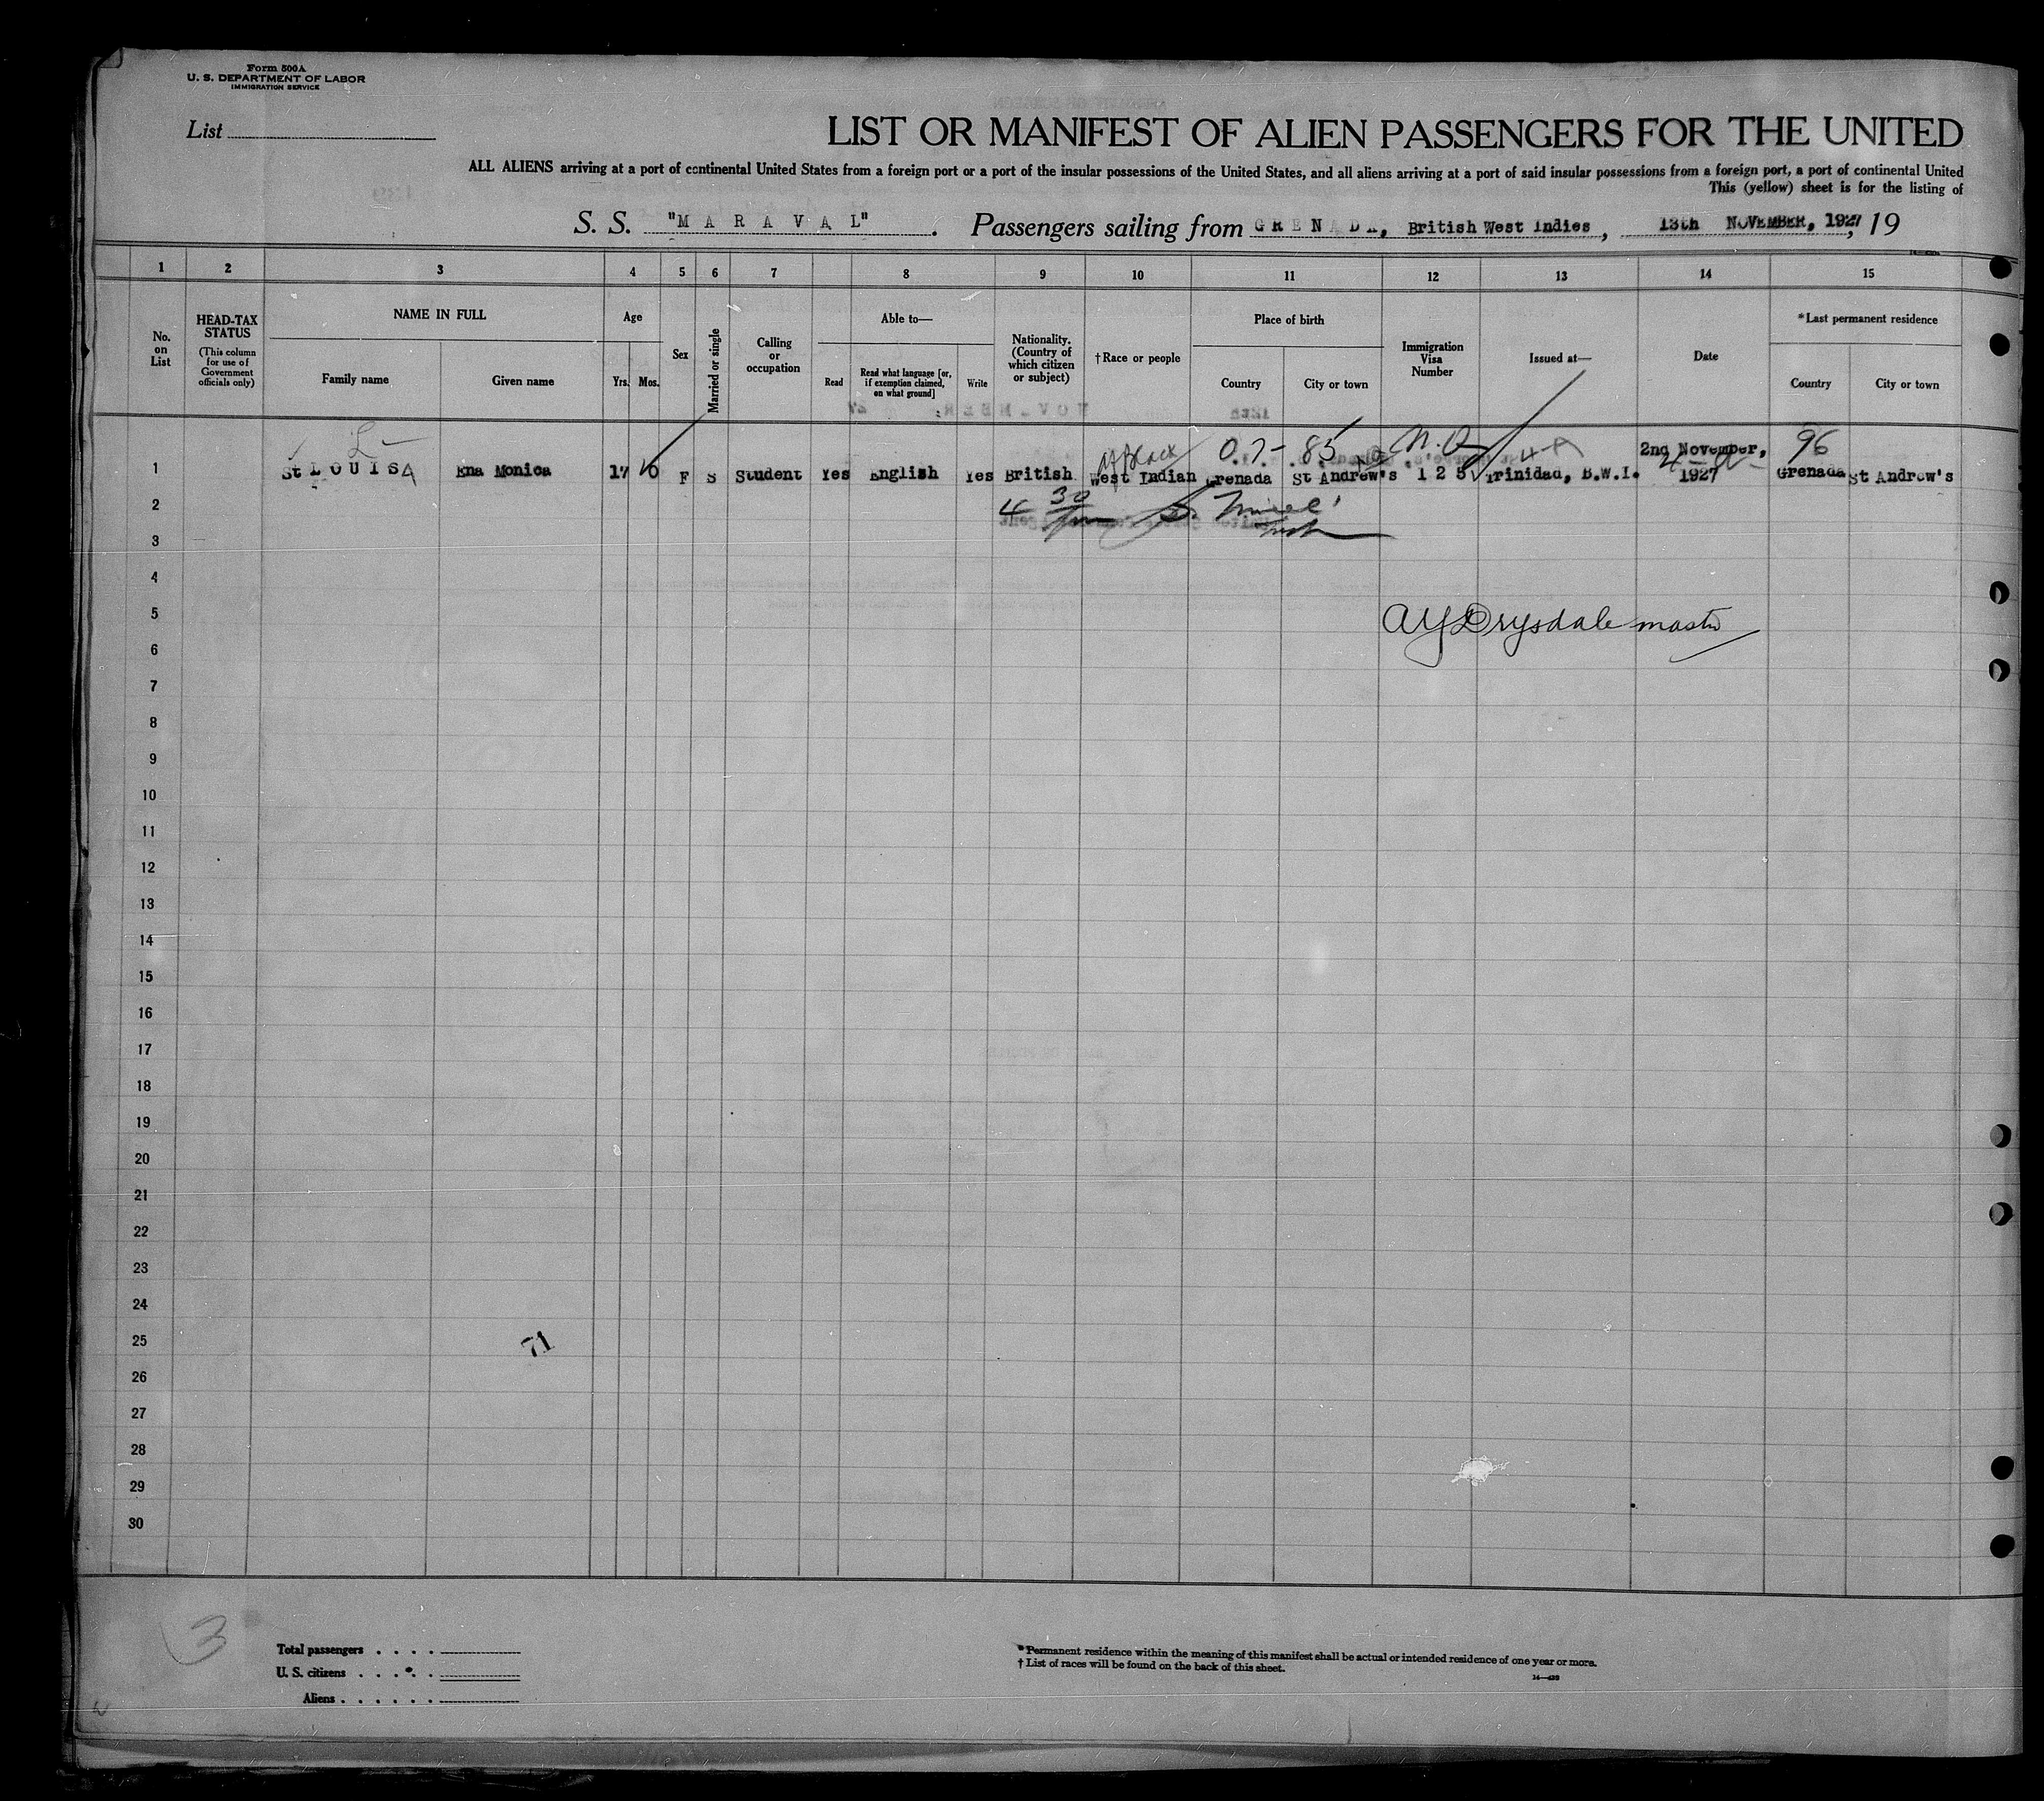 Form 500A
U. S. DEPARTMENT OF LABOR
IMMIGRATION SERVICE
List
LIST OR MANIFEST OF ALIEN PASSENGERS FOR THE UNITED
ALL ALIENS arriving at a port of continental United States from a foreign port or a port of the insular possessions of the United States, and all aliens arriving at a port of said insular possessions from a foreign port, a port of continental United
This (yellow) sheet is for the listing of
S. S. "MARAVAL". Passengers sailing from GRENADA, British West Indies, 13th NOVEMBER, 1927, 19
1 2 3 4 5 6 7 8 9 10 11 12 13 14 15
No. on List
HEAD-TAX STATUS
(This column for use of Government officials only)
NAME IN FULL
Family name
Given name
Age
Yrs.
Mos.
Sex
Married or single
Calling or occupation
Able to—
Read
Read what language [or, if exemption claimed, on what ground]
Write
Nationality. (Country of which citizen or subject)
†Race or people
Place of birth
Country
City or town
Immigration Visa Number
Issued at—
Date
*Last permanent residence
Country
City or town
L - af Black 0.7- 85 N.Q 96
1 St LOUIS Ena Monica 17 10 F S Student Yes English Yes British West Indian Grenada St Andrew's 125 Trinidad, B.W.I. 2nd November, 1927 Grenada St Andrew's
2 4 30
3
4
5 AYDrysdale master
6
7
8
9
10
11
12
13
14
15
16
17
18
19
20
21
22
23
24
25 71
26
27
28
29
30
3
Total passengers
U. S. citizens
Aliens
*Permanent residence within the meaning of this manifest shall be actual or intended residence of one year or more.
† List of races will be found on the back of this sheet.